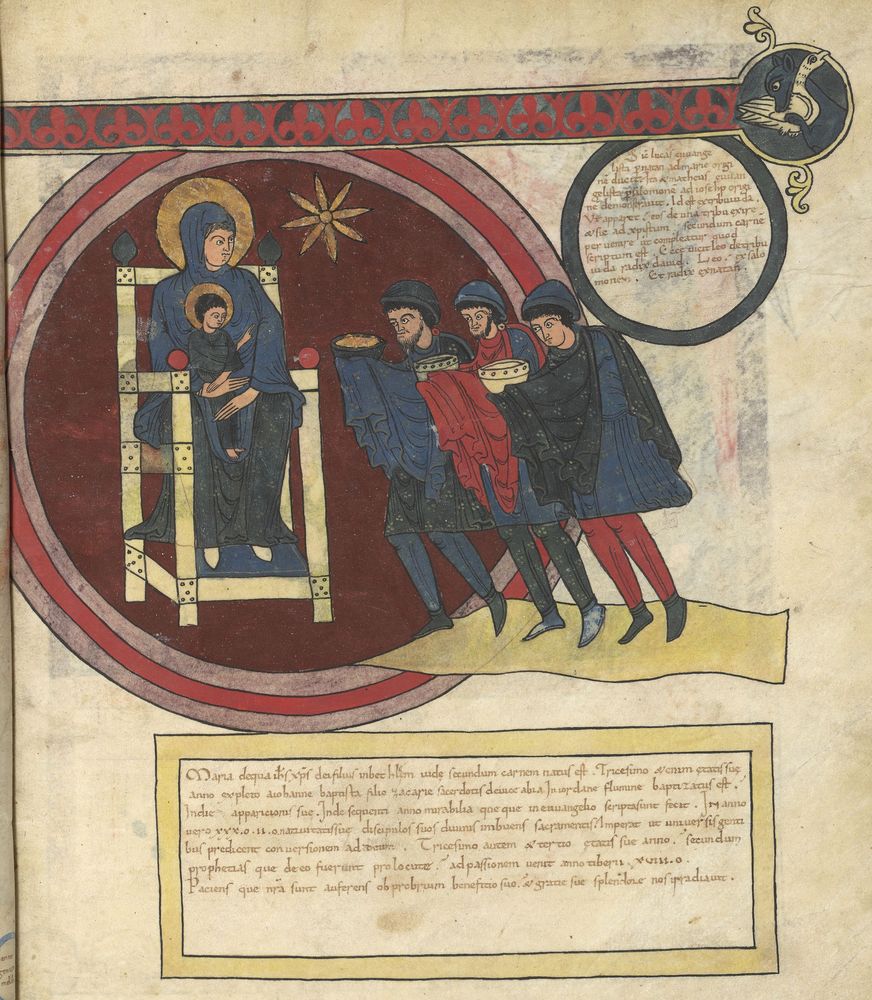 Sic lucas euuange
lista p natan ad marie origi
ne ducit Ista & matheus euuan
gelista p salomone ad ioseph origi
ne demonstrauit. Id est ex tribu iuda.
Vt appareat eos de una tribu exire
& sic ad xpistum secundum carne
peruenire ut compleatur quod
scriptum est. Ecce uicit leo de tribu
iuda radix dauid. Leo ex salo
mone. Et radix ex natan.
Maria de qua ihs xps dei filius in bethlem iude secundum carnem natus est. Tricesimo &enim etatis sue
anno expleto a iohanne baptista filio zacarie sacerdotis de uico abia in iordane flumine baptizatus est.
Indic apparicionis sue. Inde sequenti anno mirabilia que que in euuangelio scripta sunt fecit. In anno
uero xxx.o.ii.o natiuitatis sue discipulos suos diuinis inbuens sacramentis Imperat ut uniuersis genti
bus predicent conuersionem ad deum. Tricesimo autem & tertio etatis sue anno. secundum
prophetias que de eo fuerunt prolocute. ad passionem uenit anno tiberii. xuiii.o.
Paciens que nra sunt auferens obprobrium benefitio suo. & gratie sue splendore nos irradiauit.